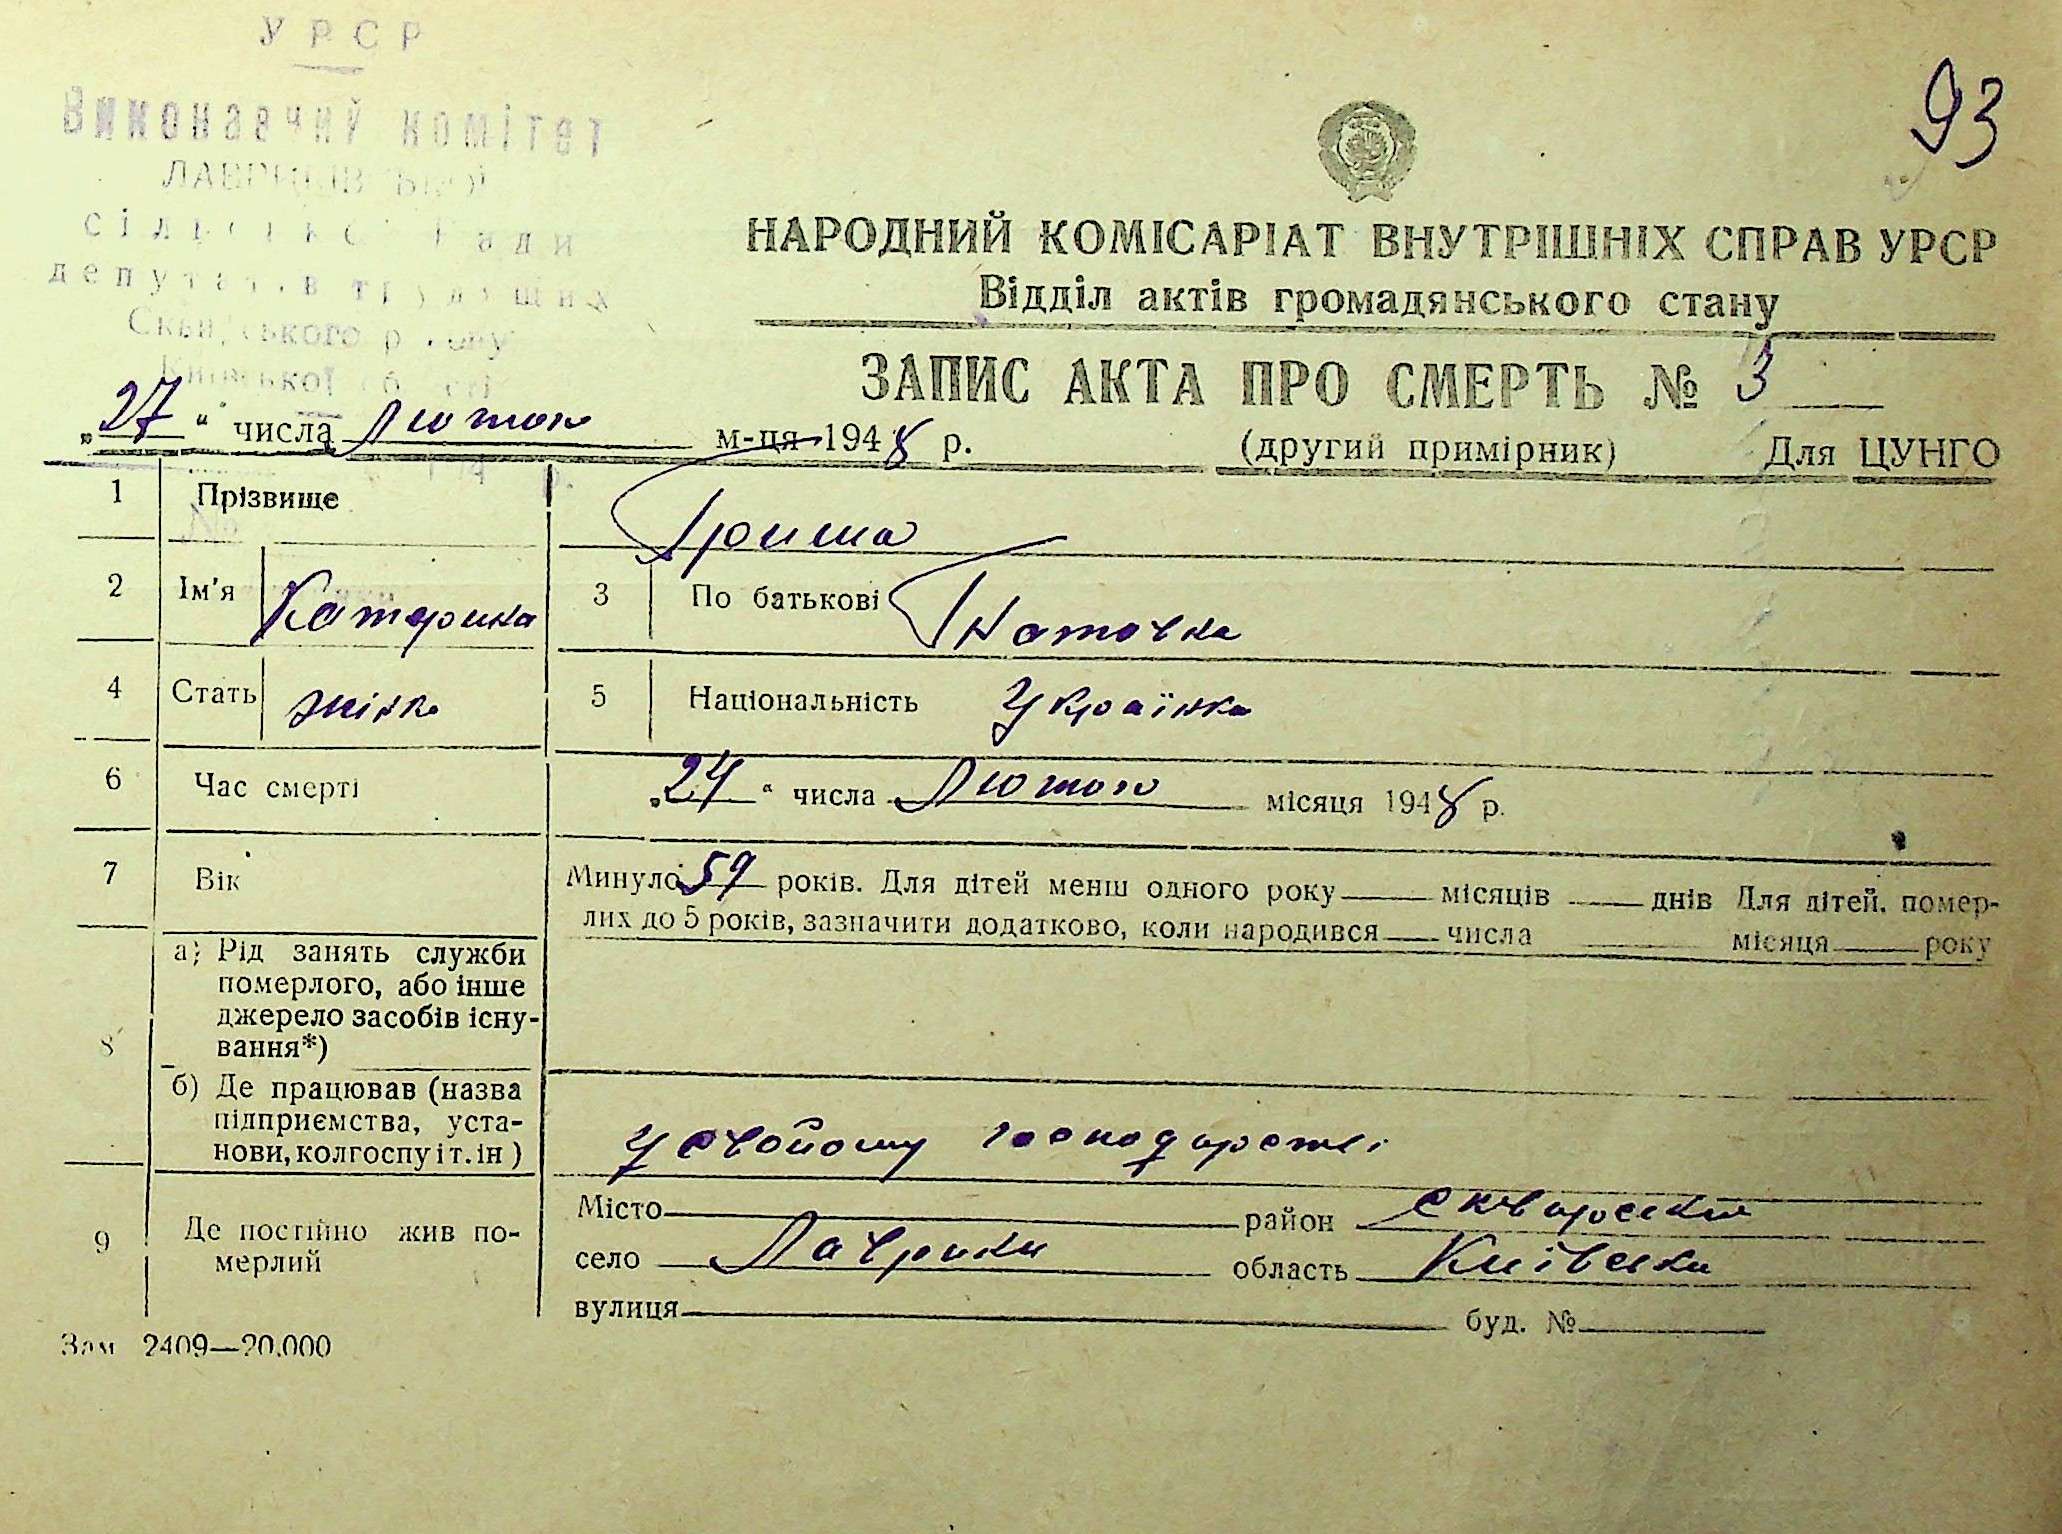 УРСР
Виконавчий комітет
сільської Ради
депутатів трудящих
Сквирського району
Київської області
93
НАРОДНИЙ КОМІСАРІАТ ВНУТРІШНІХ СПРАВ УРСР
Відділ актів громадянського стану
ЗАПИС АКТА ПРО СМЕРТЬ № 3
„27“ числа Лютого м-ця 1948 р. (другий примірник) Для ЦУНГО
1 Прізвище Гриша
2 Ім'я Катерина 3 По батькові Гнатовна
4 Стать жінка 5 Національність Українка
6 Час смерті „24“ числа Лютого місяця 1948 р.
7 Вік Минуло 59 років. Для дітей менш одного року місяців днів Для дітей, помер-
лих до 5 років, зазначити додатково, коли народився числа місяця року
8 а) Рід занять служби
померлого, або інше
джерело засобів існу-
вання*)
б) Де працював (назва
підприємства, уста-
нови, колгоспу і т. ін) у свойому господарстві
9 Де постійно жив по-
мерлий
Місто район сквирський
село Лаврики область Київська
вулиця буд. №
Зам 2409—20.000